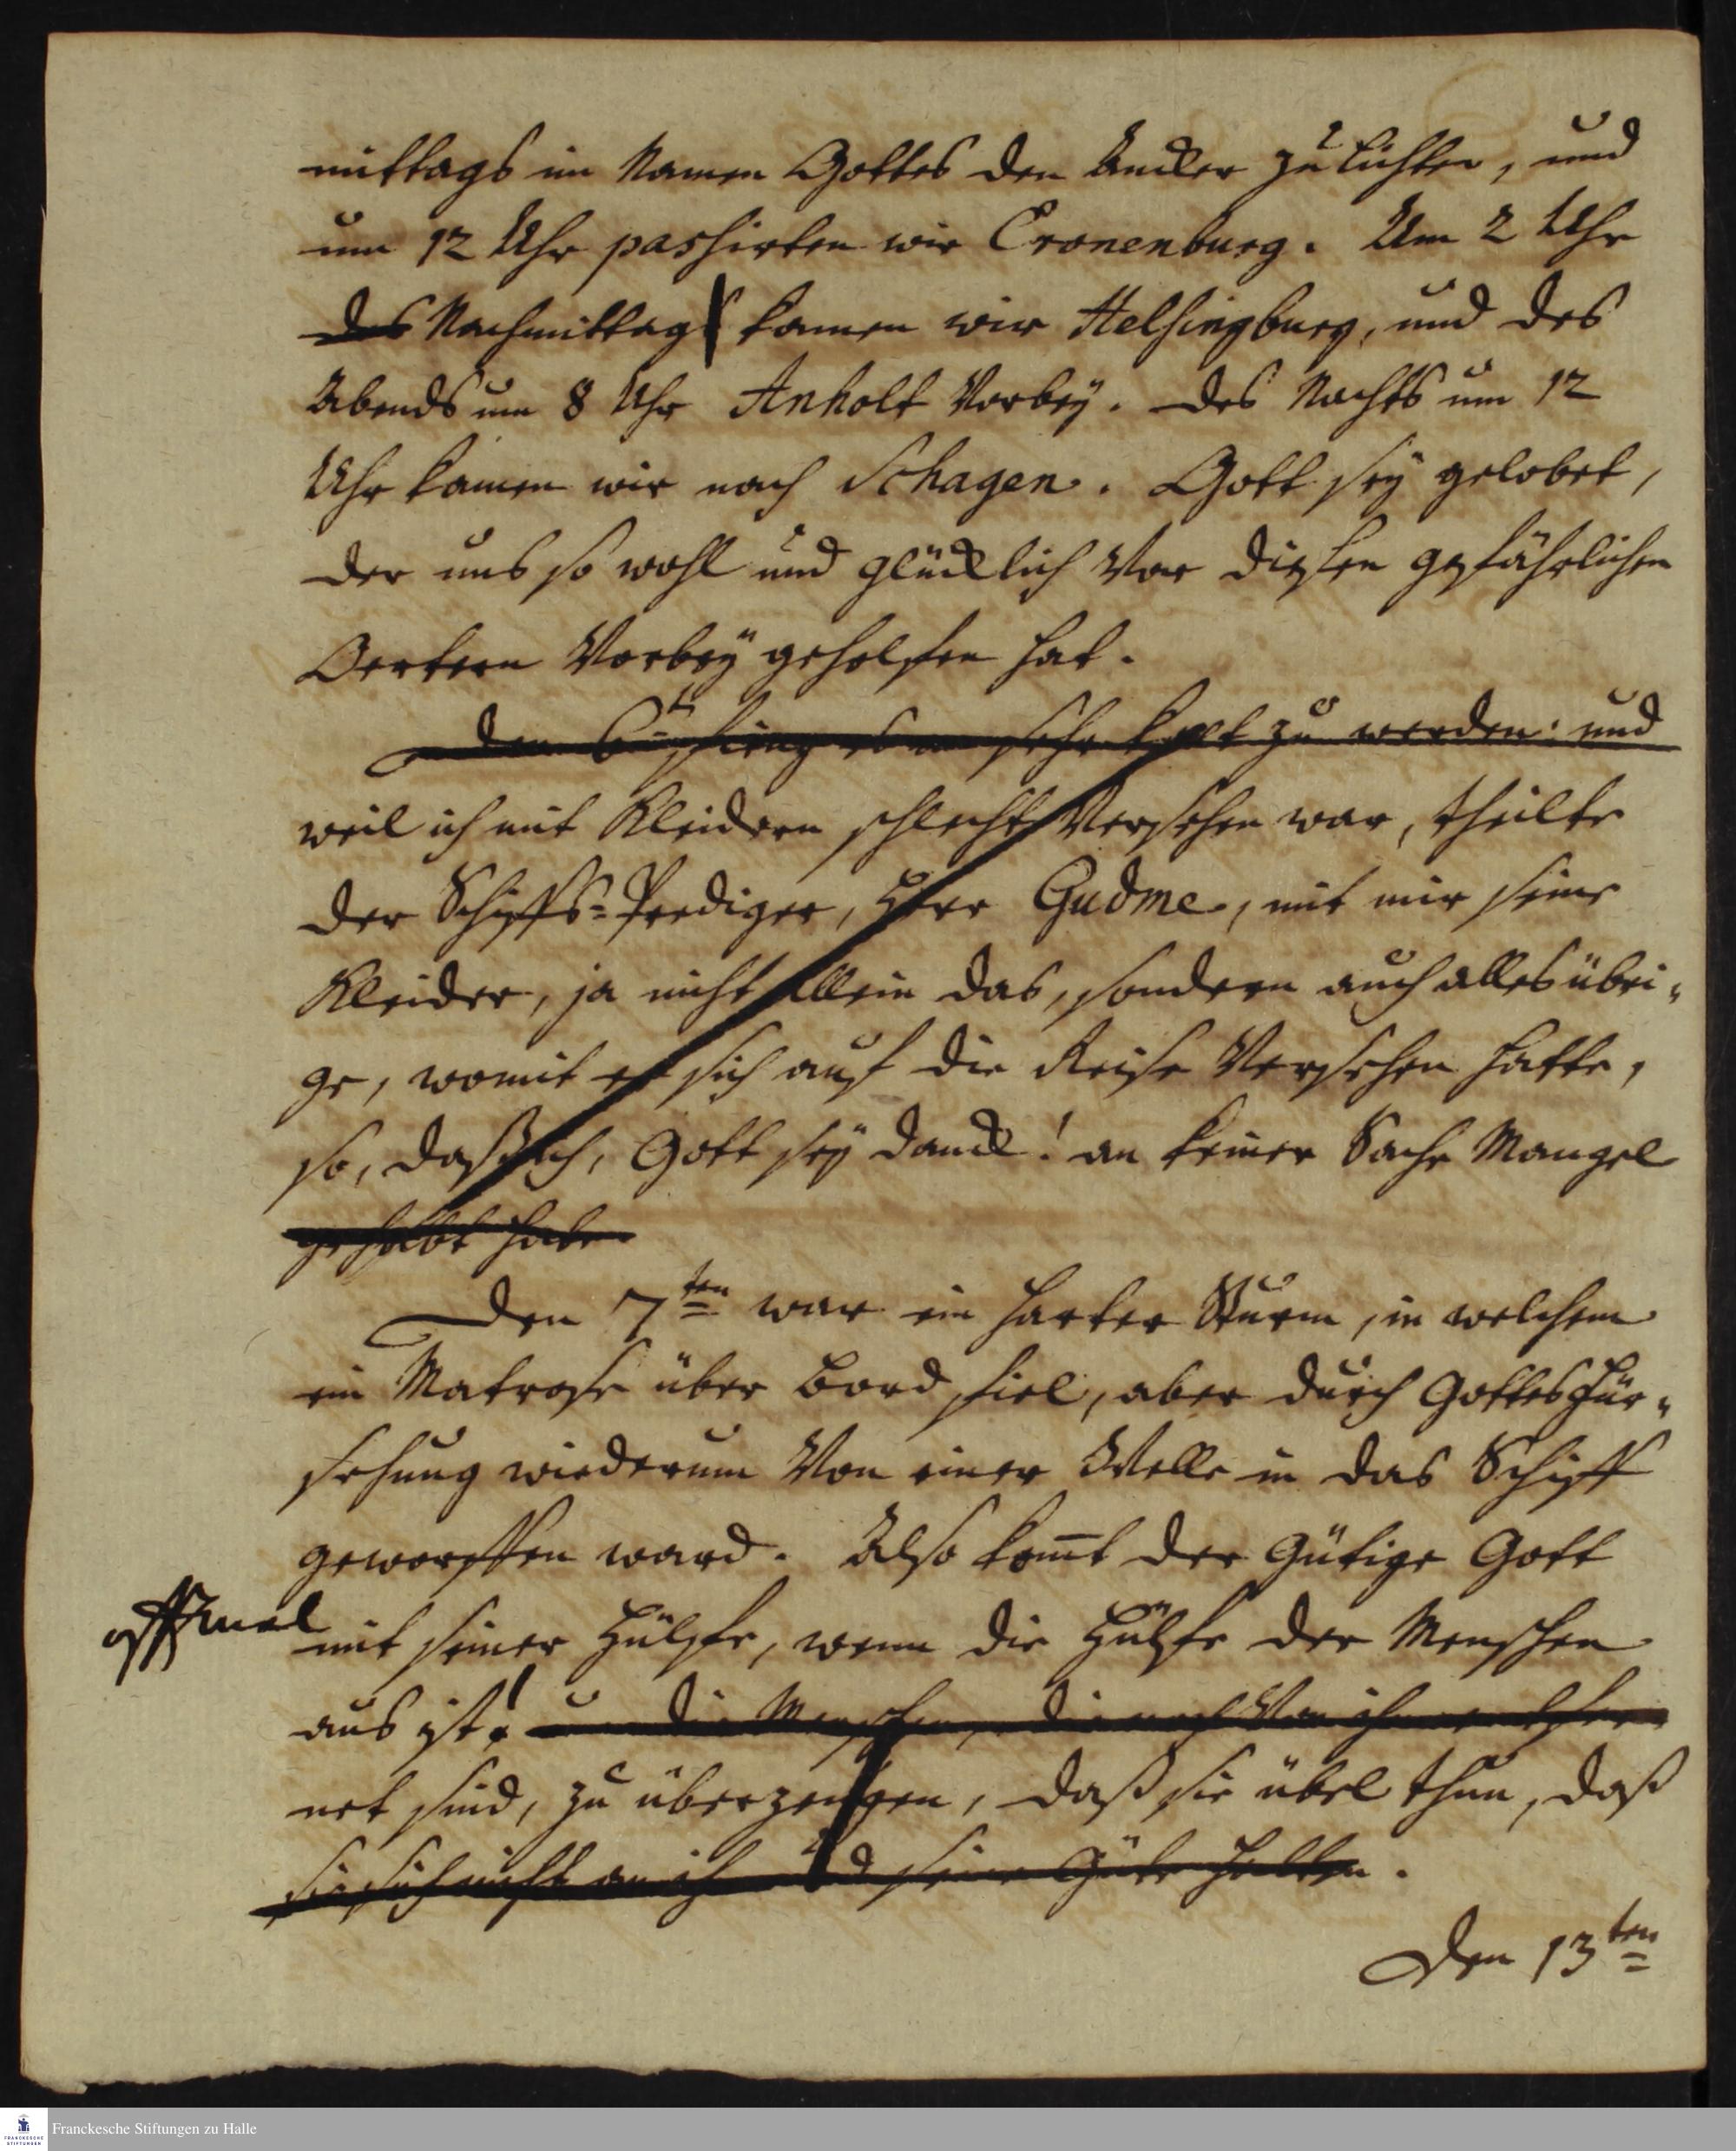 mittags im Namen Gottes den Ancker zu lichten, und
um 12 Uhr passirten wir Cronenburg. Um 2 Uhr
des Nachmittags kamen wir Helsingburg, und des
Abends um 8 Uhr Anholt vorbey. Des Nachts um 12
Uhr kamen wir nach Schagen. Gott sey gelobet,
der uns so wohl und glücklich vor diesen gefährlichen
Oertern vorbey geholfen hat.
Den 6ten fieng es an sehr kalt zu werden: und
weil ich mit Kleidern schlecht versehen war, theilte
der Schiffs-Prediger, Herr Gudme, mit mir seine
Kleider, ja nicht allein das, sondern auch alles übri-
ge, womit er sich auf die Reise versehen hatte,
so, daß ich, Gott sey danck! an keiner Sache Mangel
gehabt habe.
Den 7ten war ein harter Sturm, in welchem
ein Matrose über Bord fiel, aber durch Gottes Für-
sehung wiederum von einer Welle in das Schiff
geworffen ward. Also kom̅t der gütige Gott
offtmal
mit seiner Hülfe, wenn die Hülfe der Menschen
aus ist! um die Menschen, die noch von ihm entfer-
net sind, zu überzeugen, daß sie übel thun, daß
sie sich nicht an ihn und seine Güte halten.
Den 13ten
Franckesche Stiftungen zu Halle
FRANCKESCHE
STIFTUNGEN